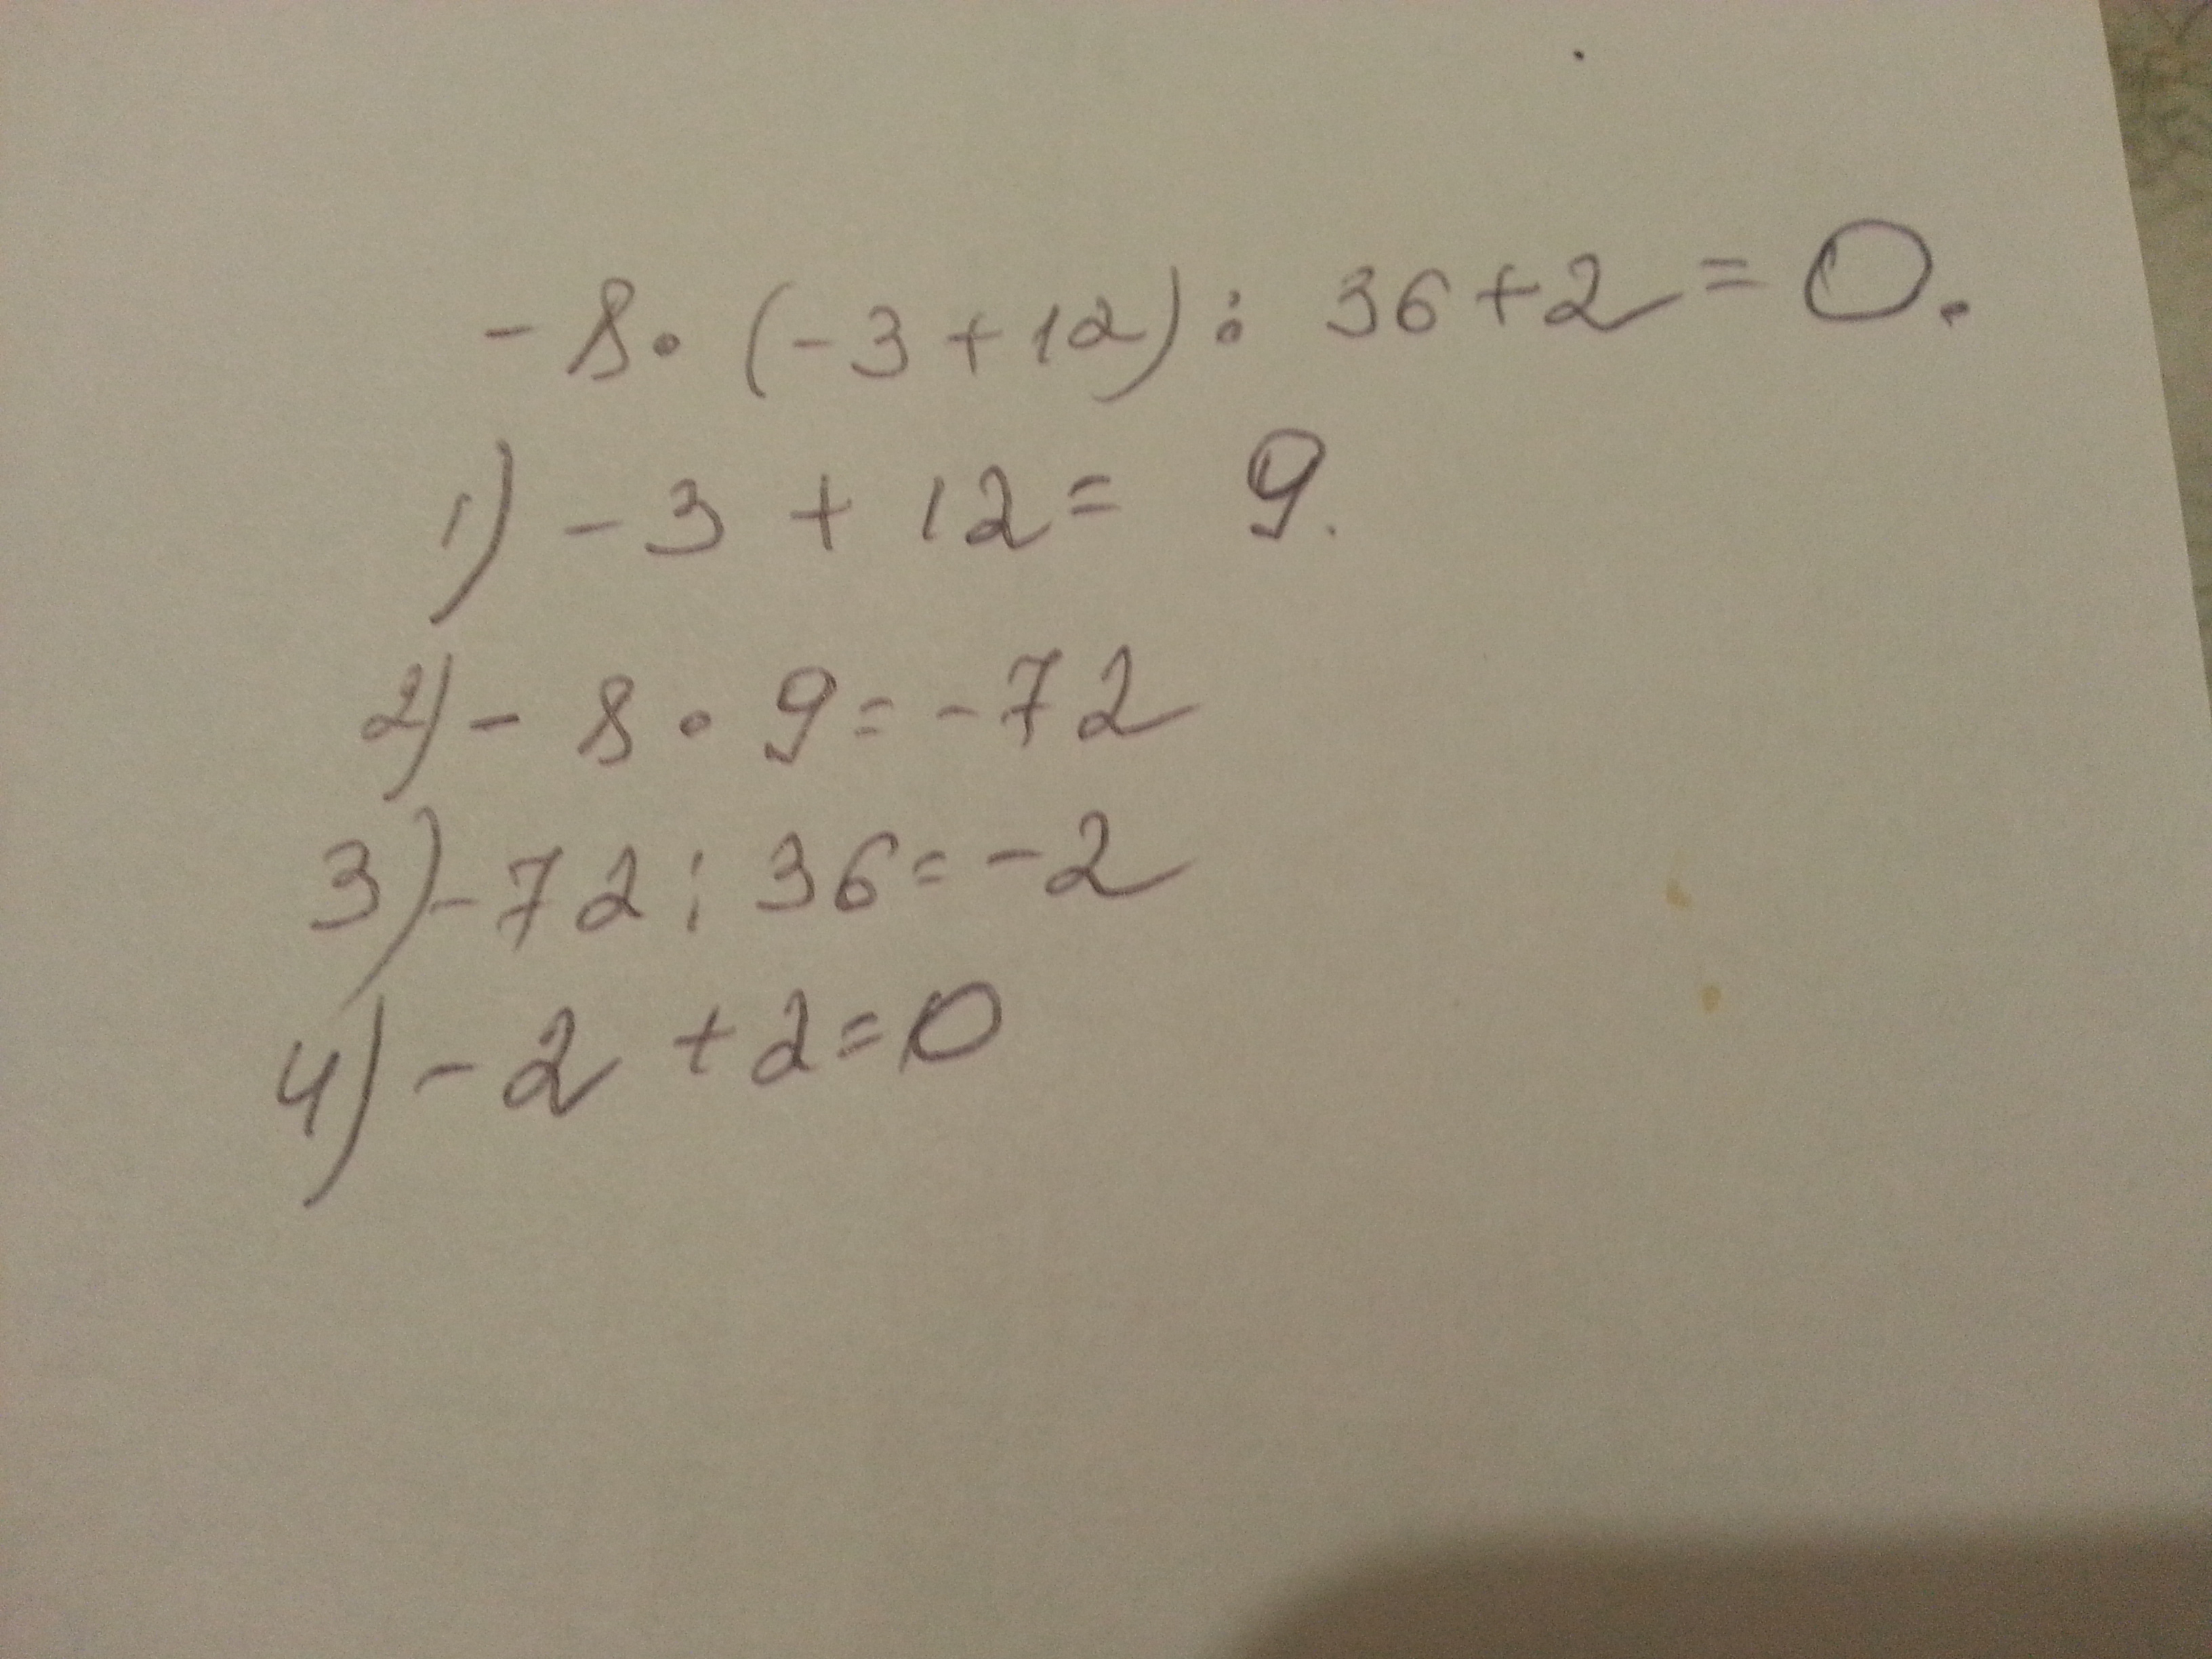 - 8 • (- 3 + 12) : 36 + 2 = 0.
1) - 3 + 12 = 9.
2) - 8 • 9 = - 72
3) - 72 : 36 = - 2
4) - 2 + 2 = 0